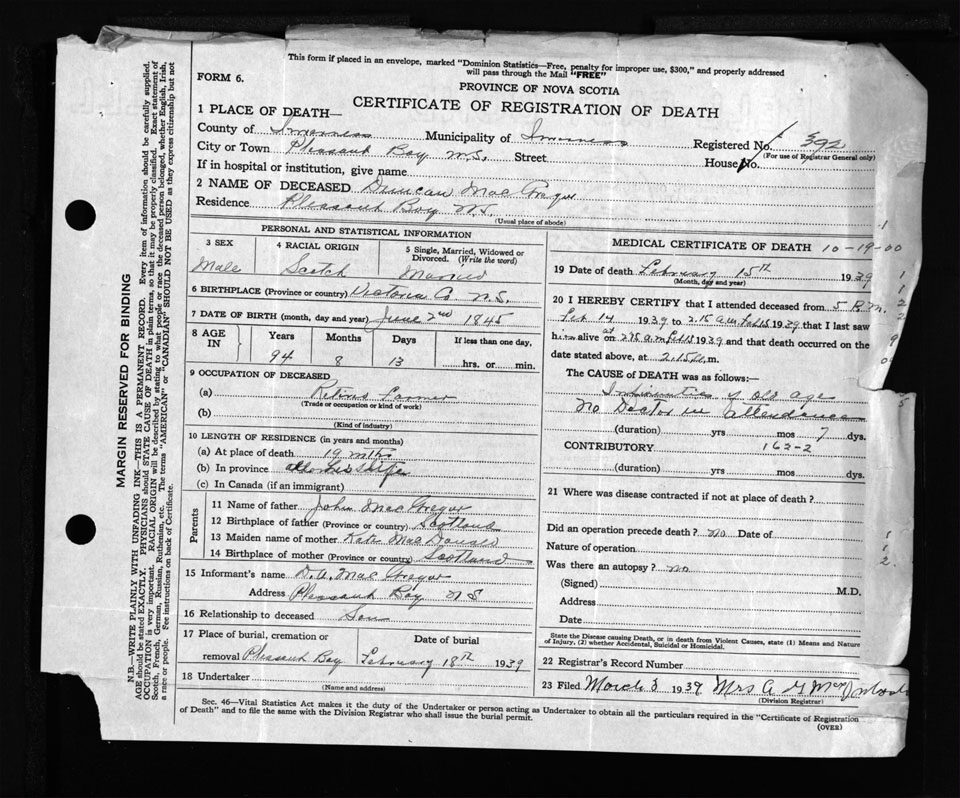 This form if placed in an envelope, marked "Dominion Statistics—Free, penalty for improper use, $300," and properly addressed
will pass through the Mail "FREE"
FORM 6.
PROVINCE OF NOVA SCOTIA
CERTIFICATE OF REGISTRATION OF DEATH
1 PLACE OF DEATH—
County of Inverness Municipality of Inverness Registered No. 392
(For use of Registrar General only)
City or Town Pleasant Bay N.S. Street House No.
If in hospital or institution, give name
2 NAME OF DECEASED Duncan Mac Gregor
Residence Pleasant Bay N.S.
(Usual place of abode)
PERSONAL AND STATISTICAL INFORMATION
3 SEX 4 RACIAL ORIGIN 5 Single, Married, Widowed or
Divorced. (Write the word)
Male Scotch Married
6 BIRTHPLACE (Province or country) Victoria Co. N.S.
7 DATE OF BIRTH (month, day and year) June 2nd 1845
8 AGE IN Years Months Days If less than one day,
94 8 13 hrs. or min.
9 OCCUPATION OF DECEASED
(a) Farmer
(Trade or occupation or kind of work)
(b)
(Kind of industry)
10 LENGTH OF RESIDENCE (in years and months)
(a) At place of death 19 mths
(b) In province
(c) In Canada (if an immigrant)
Parents
11 Name of father John Mac Gregor
12 Birthplace of father (Province or country) Scotland
13 Maiden name of mother Kate Mac Donald
14 Birthplace of mother (Province or country) Scotland
15 Informant's name D. A. Mac Gregor
Address Pleasant Bay N S
16 Relationship to deceased Son
17 Place of burial, cremation or Date of burial
removal Pleasant Bay February 18th 1939
18 Undertaker
(Name and address)
MEDICAL CERTIFICATE OF DEATH 10-19-00
19 Date of death February 15th 1939
(Month, day and year)
20 I HEREBY CERTIFY that I attended deceased from 5 P.M.
Feb 14 1939 to 2.15 a.m. Feb 15 1939 that I last saw
him alive on 2.15 a.m. Feb 15 1939 and that death occurred on the
date stated above, at 2.15 a.m.
The CAUSE OF DEATH was as follows:
Infirmities of old age
No Doctor in attendance
(duration) yrs mos 7 dys.
CONTRIBUTORY 162-2
(duration) yrs mos dys.
21 Where was disease contracted if not at place of death?
Did an operation precede death? no Date of
Nature of operation
Was there an autopsy? no
(Signed) M.D.
Address
Date
State the Disease causing Death, or in death from Violent Causes, state (1) Means and Nature
of Injury, (2) whether Accidental, Suicidal or Homicidal.
22 Registrar's Record Number
23 Filed March 3 1939 Mrs A G
(Division Registrar)
Sec. 46—Vital Statistics Act makes it the duty of the Undertaker or person acting as Undertaker to obtain all the particulars required in the "Certificate of Registration
of Death" and to file the same with the Division Registrar who shall issue the burial permit.
(OVER)
MARGIN RESERVED FOR BINDING
N.B.—WRITE PLAINLY WITH UNFADING INK—THIS IS A PERMANENT RECORD. Every item of information should be carefully supplied.
AGE should be stated EXACTLY. PHYSICIANS should STATE CAUSE OF DEATH in plain terms, so that it may be properly classified. Exact statement of
OCCUPATION is very important. RACIAL ORIGIN will be described by stating to what people or race the deceased person belonged, whether English, Irish,
Scotch, French, German, Russian, Ruthenian, etc. The terms "AMERICAN" or "CANADIAN" SHOULD NOT BE USED as they express citizenship but not
a race or people. See instructions on back of Certificate.